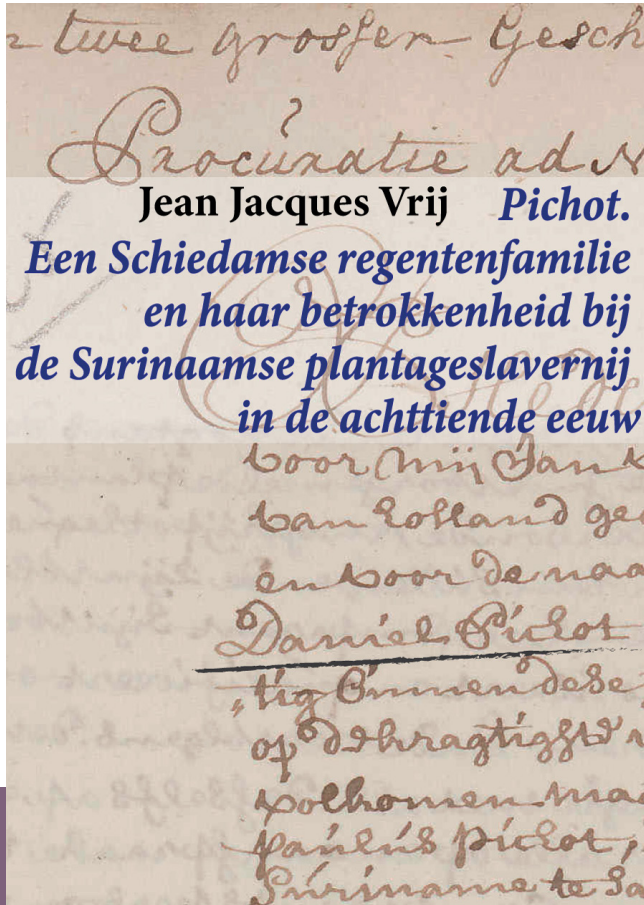 twee grossen Gesch
Procuratie ad
Jean Jacques Vrij Pichot.
Een Schiedamse regentenfamilie
en haar betrokkenheid bij
de Surinaamse plantageslavernij
in de achttiende eeuw
voor mij Jan
van Holland ge
en voor de naa
Daniel Pichot
tig binnen dese
op 't bekragtighste
volkomen ma
paulus pichot,
Suriname te